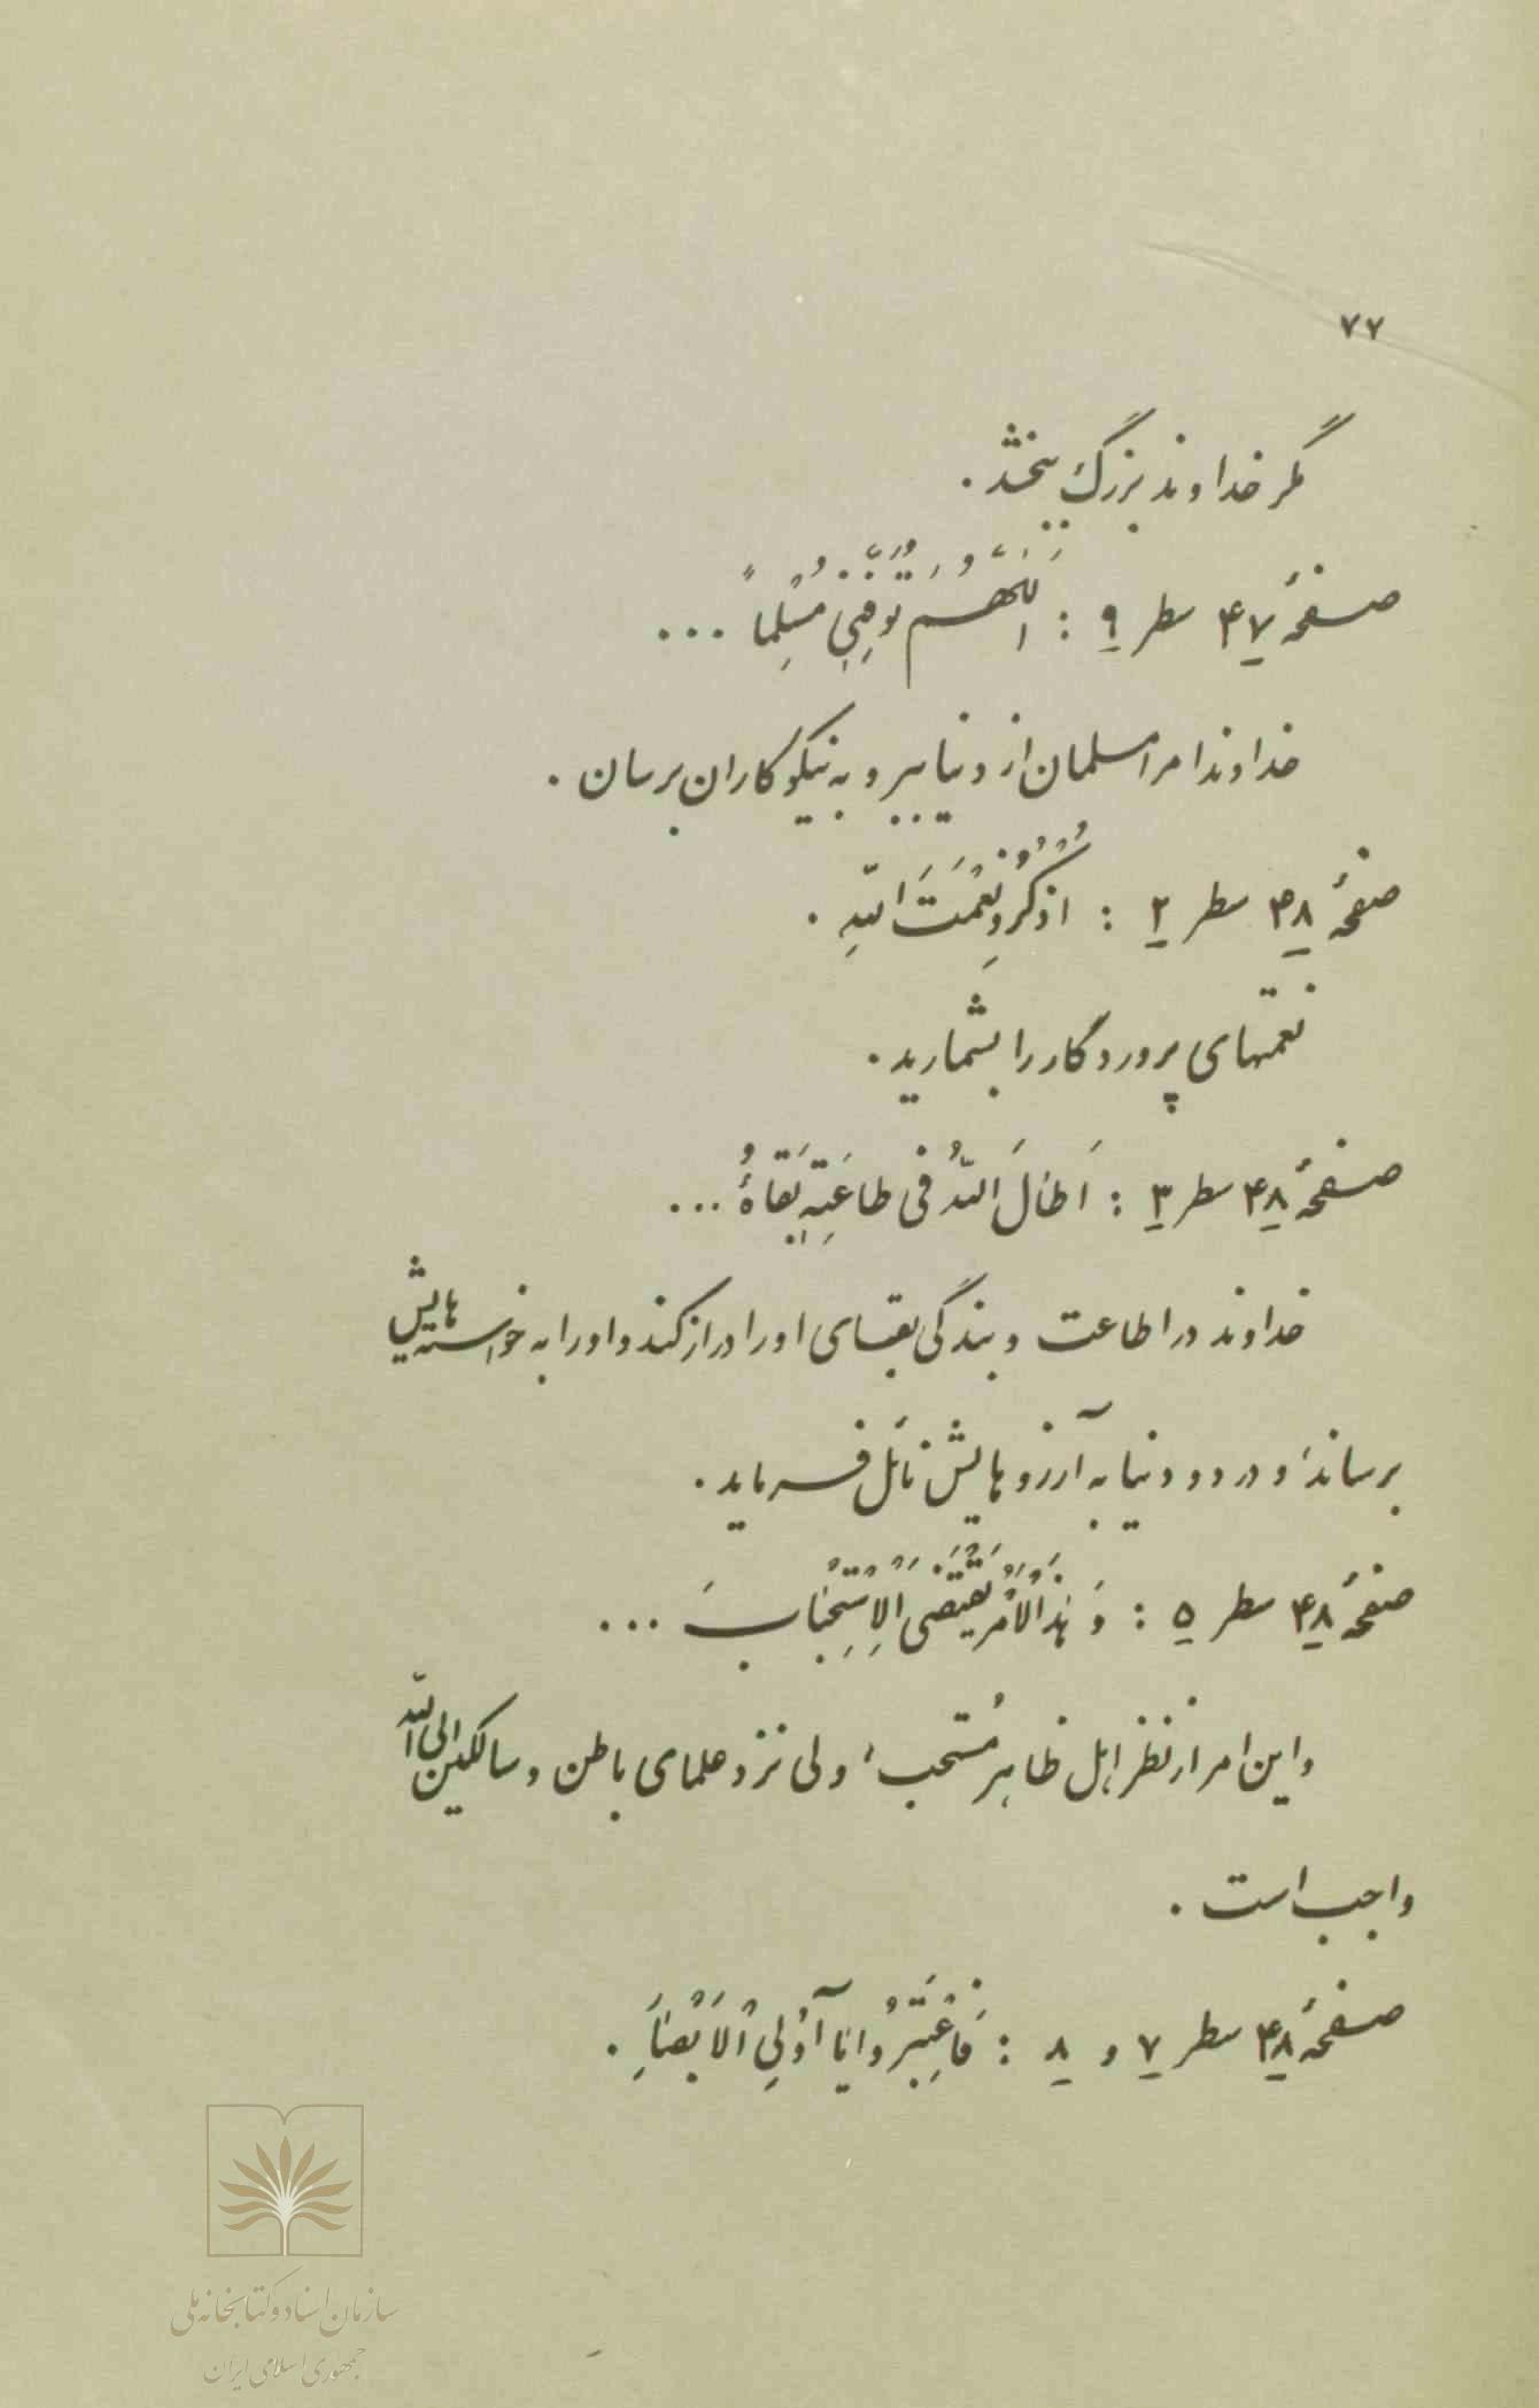 ۷۷
مگر خداوند بزرگ ببخشد .
صفحهٔ ۴۷ سطر ۹ : اَللّهُمَّ تَوَفَّنِی مُسْلِماً ...
خداوندا مرا مسلمان از دنیا ببر و به نیکوکاران برسان .
صفحهٔ ۴۸ سطر ۲ : اُذْکُرُو نِعْمَتَ اللّهِ .
نعمتهای پروردگار را بشمارید .
صفحهٔ ۴۸ سطر ۳ : اَطالَ اللّهُ فی طاعَتِهِ بَقاهُ ...
خداوند در اطاعت و بندگی بقای او را دراز کند و او را به خواسته هایش
برساند و در دو دنیا به آرزوهایش نائل فرماید .
صفحهٔ ۴۸ سطر ۵ : وَ هٰذَا الْاَمْرُ یَقْتَضِی الْاِسْتِحْبابَ ...
و این امر از نظر اهل ظاهر مُستحب، ولی نزد علمای باطن و سالکین الی اللّه
واجب است .
صفحهٔ ۴۸ سطر ۷ و ۸ : فَاعْتَبِرُوا یا آوُلِی الْاَبْصٰارِ .
سازمان اسناد و کتابخانه ملی
جمهوری اسلامی ایران